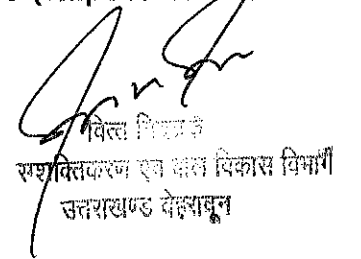 वित्त
सशक्तिकरण एवं बाल विकास विभाग
उत्तराखण्ड देहरादून